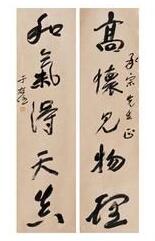 高懷見物理
承宗先生正
和氣得天真
于右任